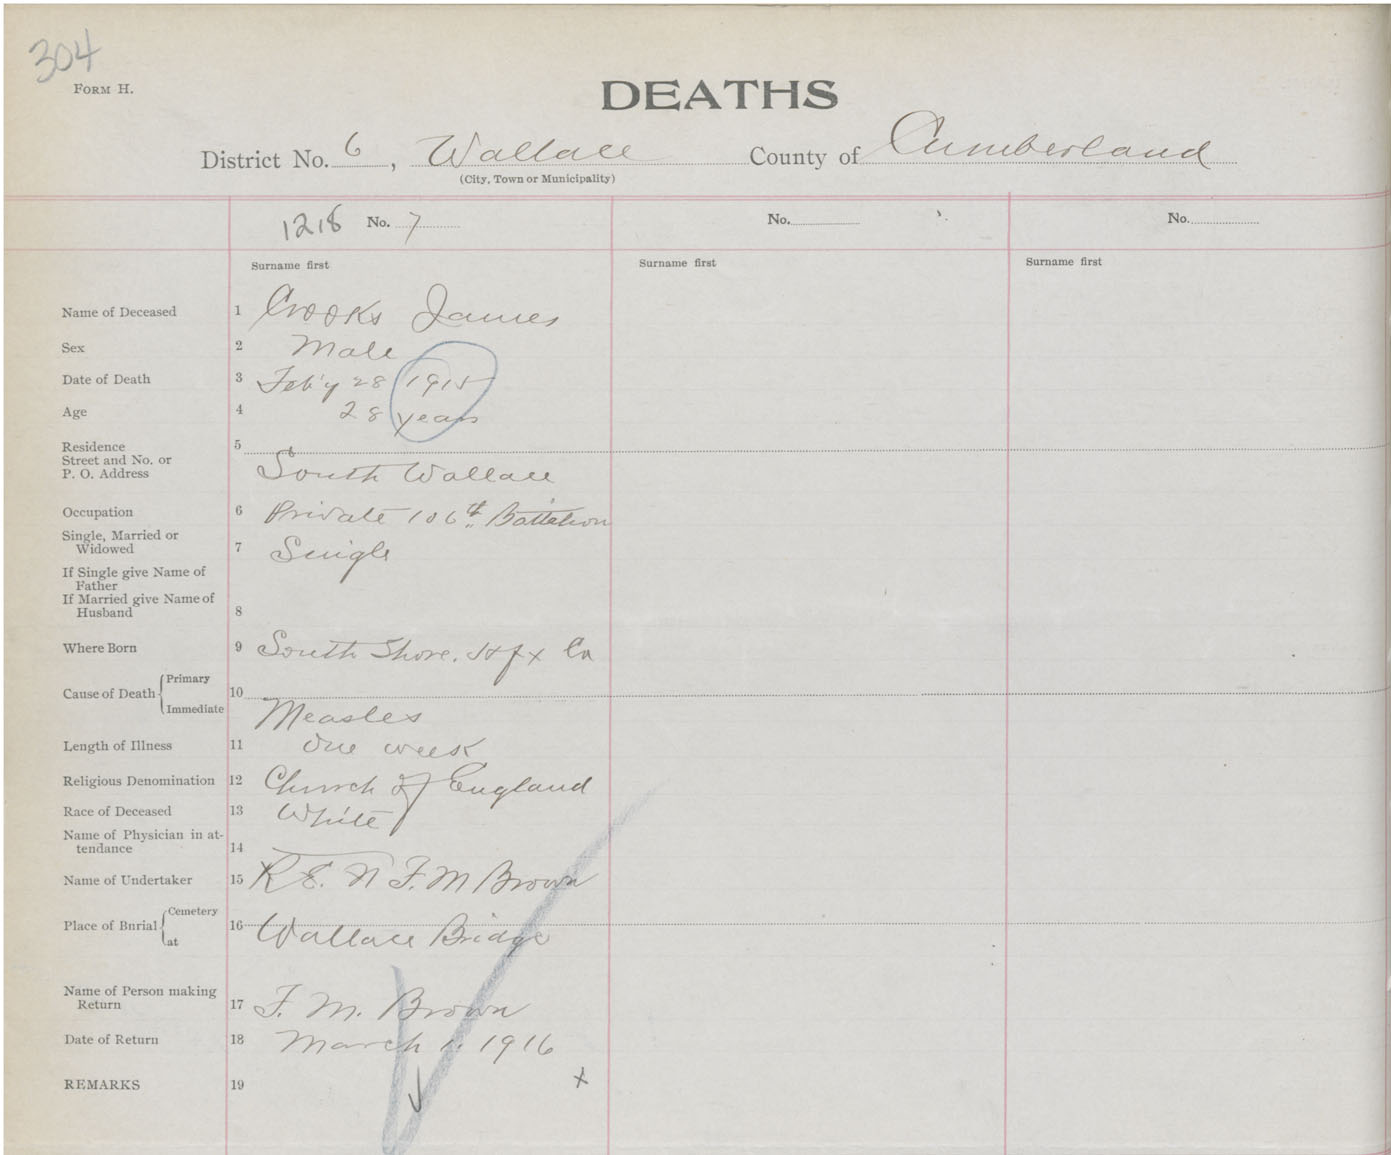 304
FORM H.
DEATHS
District No. 6, Wallace County of Cumberland
(City, Town or Municipality)
1218 No. 7 No. No.
Surname first Surname first Surname first
Name of Deceased 1 Crooks James
Sex 2 Male
Date of Death 3 Feb'y 28 1915
Age 4 28 years
Residence 5
Street and No. or
P. O. Address South Wallace
Occupation 6 Private 106th Battalion
Single, Married or
Widowed 7 Single
If Single give Name of
Father
If Married give Name of
Husband 8
Where Born 9 South Shore. Hfx Co
Cause of Death Primary
10
Immediate Measles
Length of Illness 11 One week
Religious Denomination 12 Church of England
Race of Deceased 13 White
Name of Physician in at-
tendance 14
Name of Undertaker 15 F. M Brown
Place of Bnrial Cemetery
16
at Wallace Bridge
Name of Person making
Return 17 F. M. Brown
Date of Return 18 March 1. 1916
REMARKS 19 x